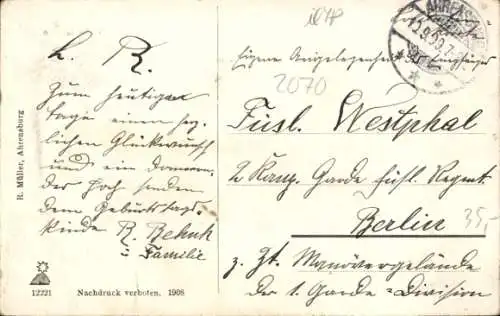 L. R.
Zum heutigen
Tage einen herz-
lichen Glückwunsch
und ein donnern-
des Hoch senden
dem Geburtstags-
kinde R. Behnk
u. Familie
R. Müller, Ahrensburg
12221 Nachdruck verboten. 1908
AHRENSBURG
15.9.09.7-
Eigene Angelegenheit des Empfängers
2070
Füsl. Westphal
2 Komp. Garde Füsl. Regmt.
Berlin
35,-
z. Zt. Manövergelände
der 1. Garde-Division